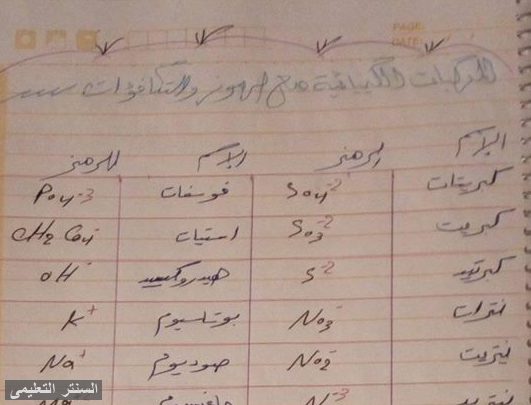 PAGE:
DATE:
المركبات الكيميائية مع الرموز والتكافؤات
الإسم الرمز الإسم الرمز
كبريتات So4-2 فوسفات Po4-3
كبريت So3-2 استيات CH2 Coo-
كبرتيد S-2 هيدروكسيد OH-
نترات No3- بوتاسيوم K+
نتريت No2- صوديوم Na+
N-3
السنتر التعليمى